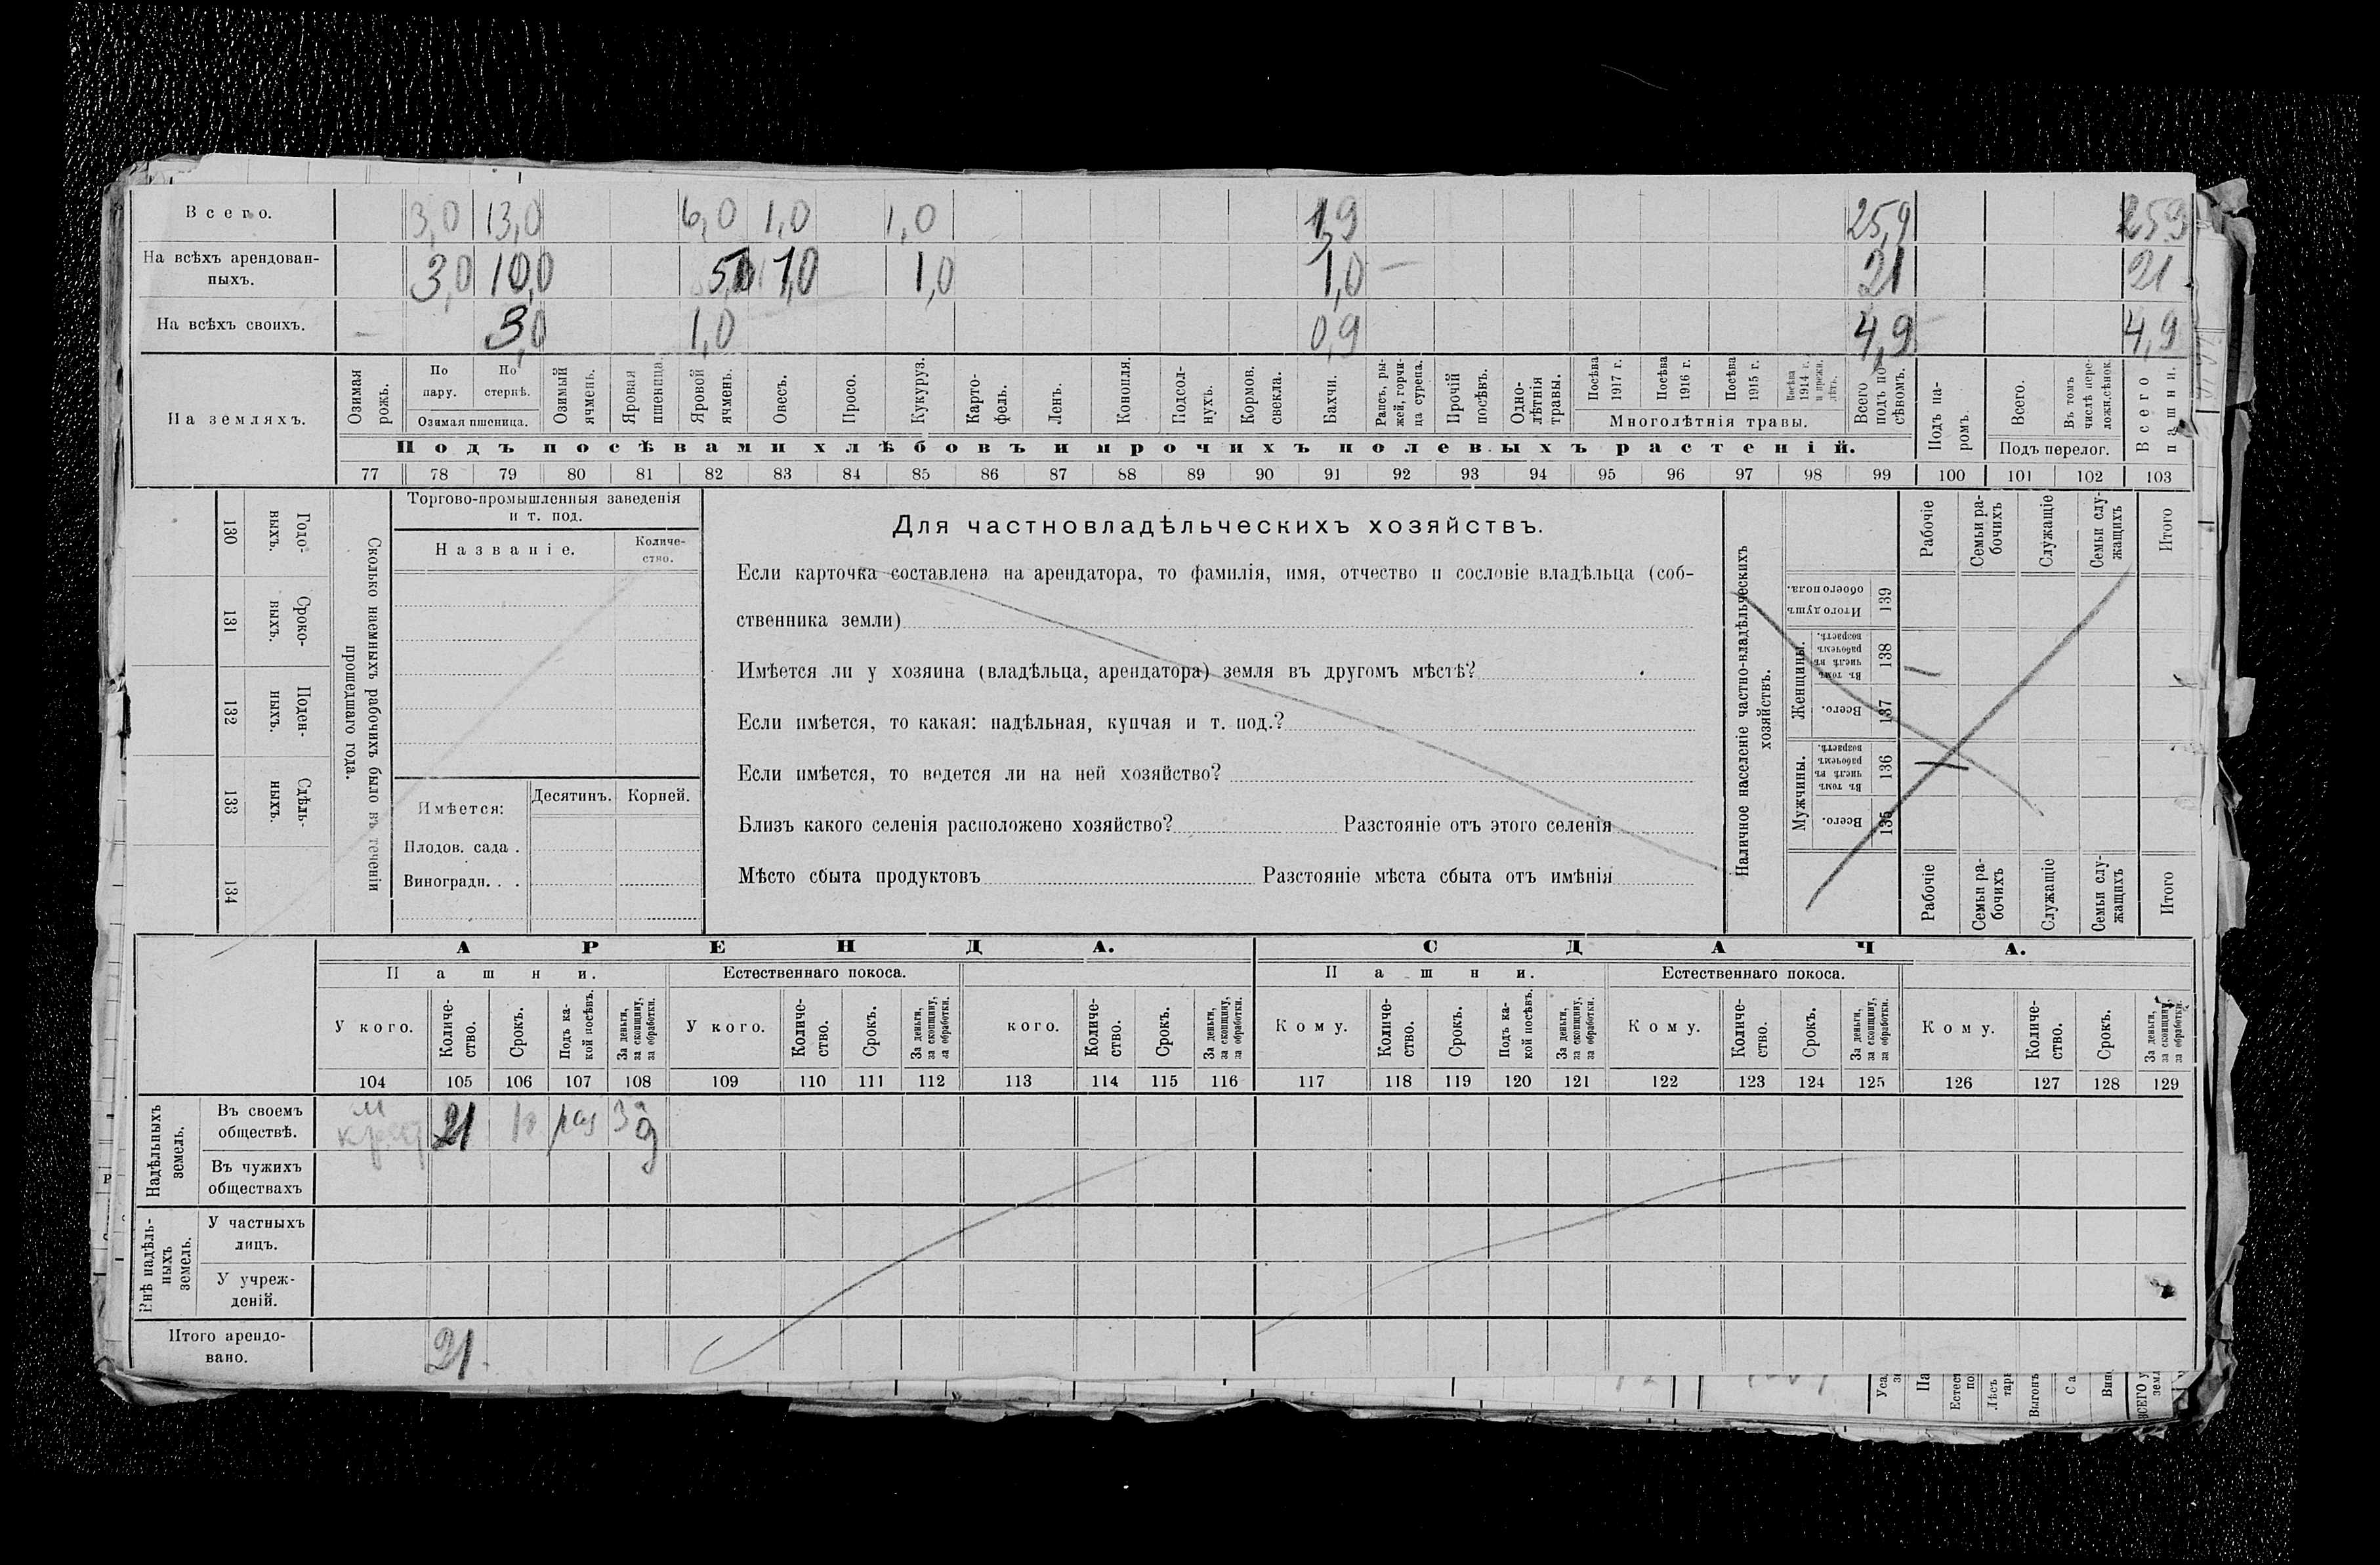 Всего. 3,0 13,0 6,0 1,0 1,0 1,9 25,9 25,9
На всѣхъ арендован-
ныхъ. 3,0 10,0 5,0 1,0 1,0 1,0 — 21 21
На всѣхъ своихъ. — 3,0 1,0 0,9 4,9 4,9
На земляхъ.
Озимая рожь.
По пару.
По стернѣ.
Озимая пшеница.
Озимый ячмень.
Яровая пшеница.
Яровой ячмень.
Овесъ.
Просо.
Кукуруз.
Карто-
фель.
Ленъ.
Конопля.
Подсол-
нухъ.
Кормов. свекла.
Бахчи.
Рапсъ, ры-
жей, горчи-
ца сурепа.
Прочій посѣвъ.
Одно-
лѣтнія травы.
Посѣва 1917 г.
Посѣва 1916 г.
Посѣва 1915 г.
Посѣва 1914 г. и прежн. лѣтъ.
Многолѣтнія травы.
Всего подъ по-
сѣвомъ.
Подъ посѣвами хлѣбовъ и прочихъ полевыхъ растеній.
Подъ па-
ромъ.
Всего.
Въ томъ числѣ пере-
ложн. сѣнок.
Подъ перелог.
Всего пашни.
77 78 79 80 81 82 83 84 85 86 87 88 89 90 91 92 93 94 95 96 97 98 99 100 101 102 103
Сколько наемныхъ рабочихъ было въ теченіи
прошедшаго года.
Годо-
выхъ.
130
Сроко-
выхъ.
131
Поден-
ныхъ.
132
Сдѣль-
ныхъ.
133
134
Торгово-промышленныя заведенія
и т. под.
Названіе.
Количе-
ство.
Имѣется: Десятинъ. Корней.
Плодов. сада .
Виноградн. . .
Для частновладѣльческихъ хозяйствъ.
Если карточка составлена на арендатора, то фамилія, имя, отчество и сословіе владѣльца (соб-
ственника земли)
Имѣется ли у хозяина (владѣльца, арендатора) земля въ другомъ мѣстѣ?
Если имѣется, то какая: надѣльная, купчая и т. под.?
Если имѣется, то ведется ли на ней хозяйство?
Близъ какого селенія расположено хозяйство? Разстояніе отъ этого селенія
Мѣсто сбыта продуктовъ Разстояніе мѣста сбыта отъ имѣнія
Наличное населеніе частно-владѣльческихъ
хозяйствъ.
Рабочіе
Семьи ра-
бочихъ
Служащіе
Семьи слу-
жащихъ
Итого
Итого душъ обоего пола.
139
Женщины.
Въ томъ числѣ въ рабочемъ возрастѣ.
138
Всего.
137
Мужчины.
Въ томъ числѣ въ рабочемъ возрастѣ.
136
Всего.
135
Рабочіе
Семьи ра-
бочихъ
Служащіе
Семьи слу-
жащихъ
Итого
АРЕНДА. СДАЧА.
Пашни. Естественнаго покоса. Пашни. Естественнаго покоса.
У кого.
Количе-
ство.
Срокъ.
Подъ ка-
кой посѣвъ.
За деньги, за скопщину, за обработки.
У кого.
Количе-
ство.
Срокъ.
За деньги, за скопщину, за обработки.
кого.
Количе-
ство.
Срокъ.
За деньги, за скопщину, за обработки.
Кому.
Количе-
ство.
Срокъ.
Подъ ка-
кой посѣвъ.
За деньги, за скопщину, за обработки.
Кому.
Количе-
ство.
Срокъ.
За деньги, за скопщину, за обработки.
Кому.
Количе-
ство.
Срокъ.
За деньги, за скопщину, за обработки.
104 105 106 107 108 109 110 111 112 113 114 115 116 117 118 119 120 121 122 123 124 125 126 127 128 129
Надѣльныхъ
земель.
Въ своемъ
обществѣ. 21 раз
Въ чужихъ
обществахъ
Внѣ надѣль-
ныхъ
земель.
У частныхъ
лицъ.
У учреж-
деній.
Итого арендо-
вано. 21.